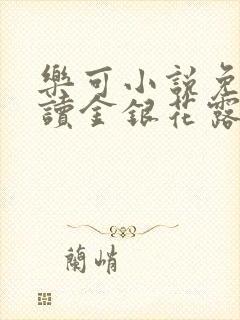 樂可小說免
讀金銀花露
蘭峭